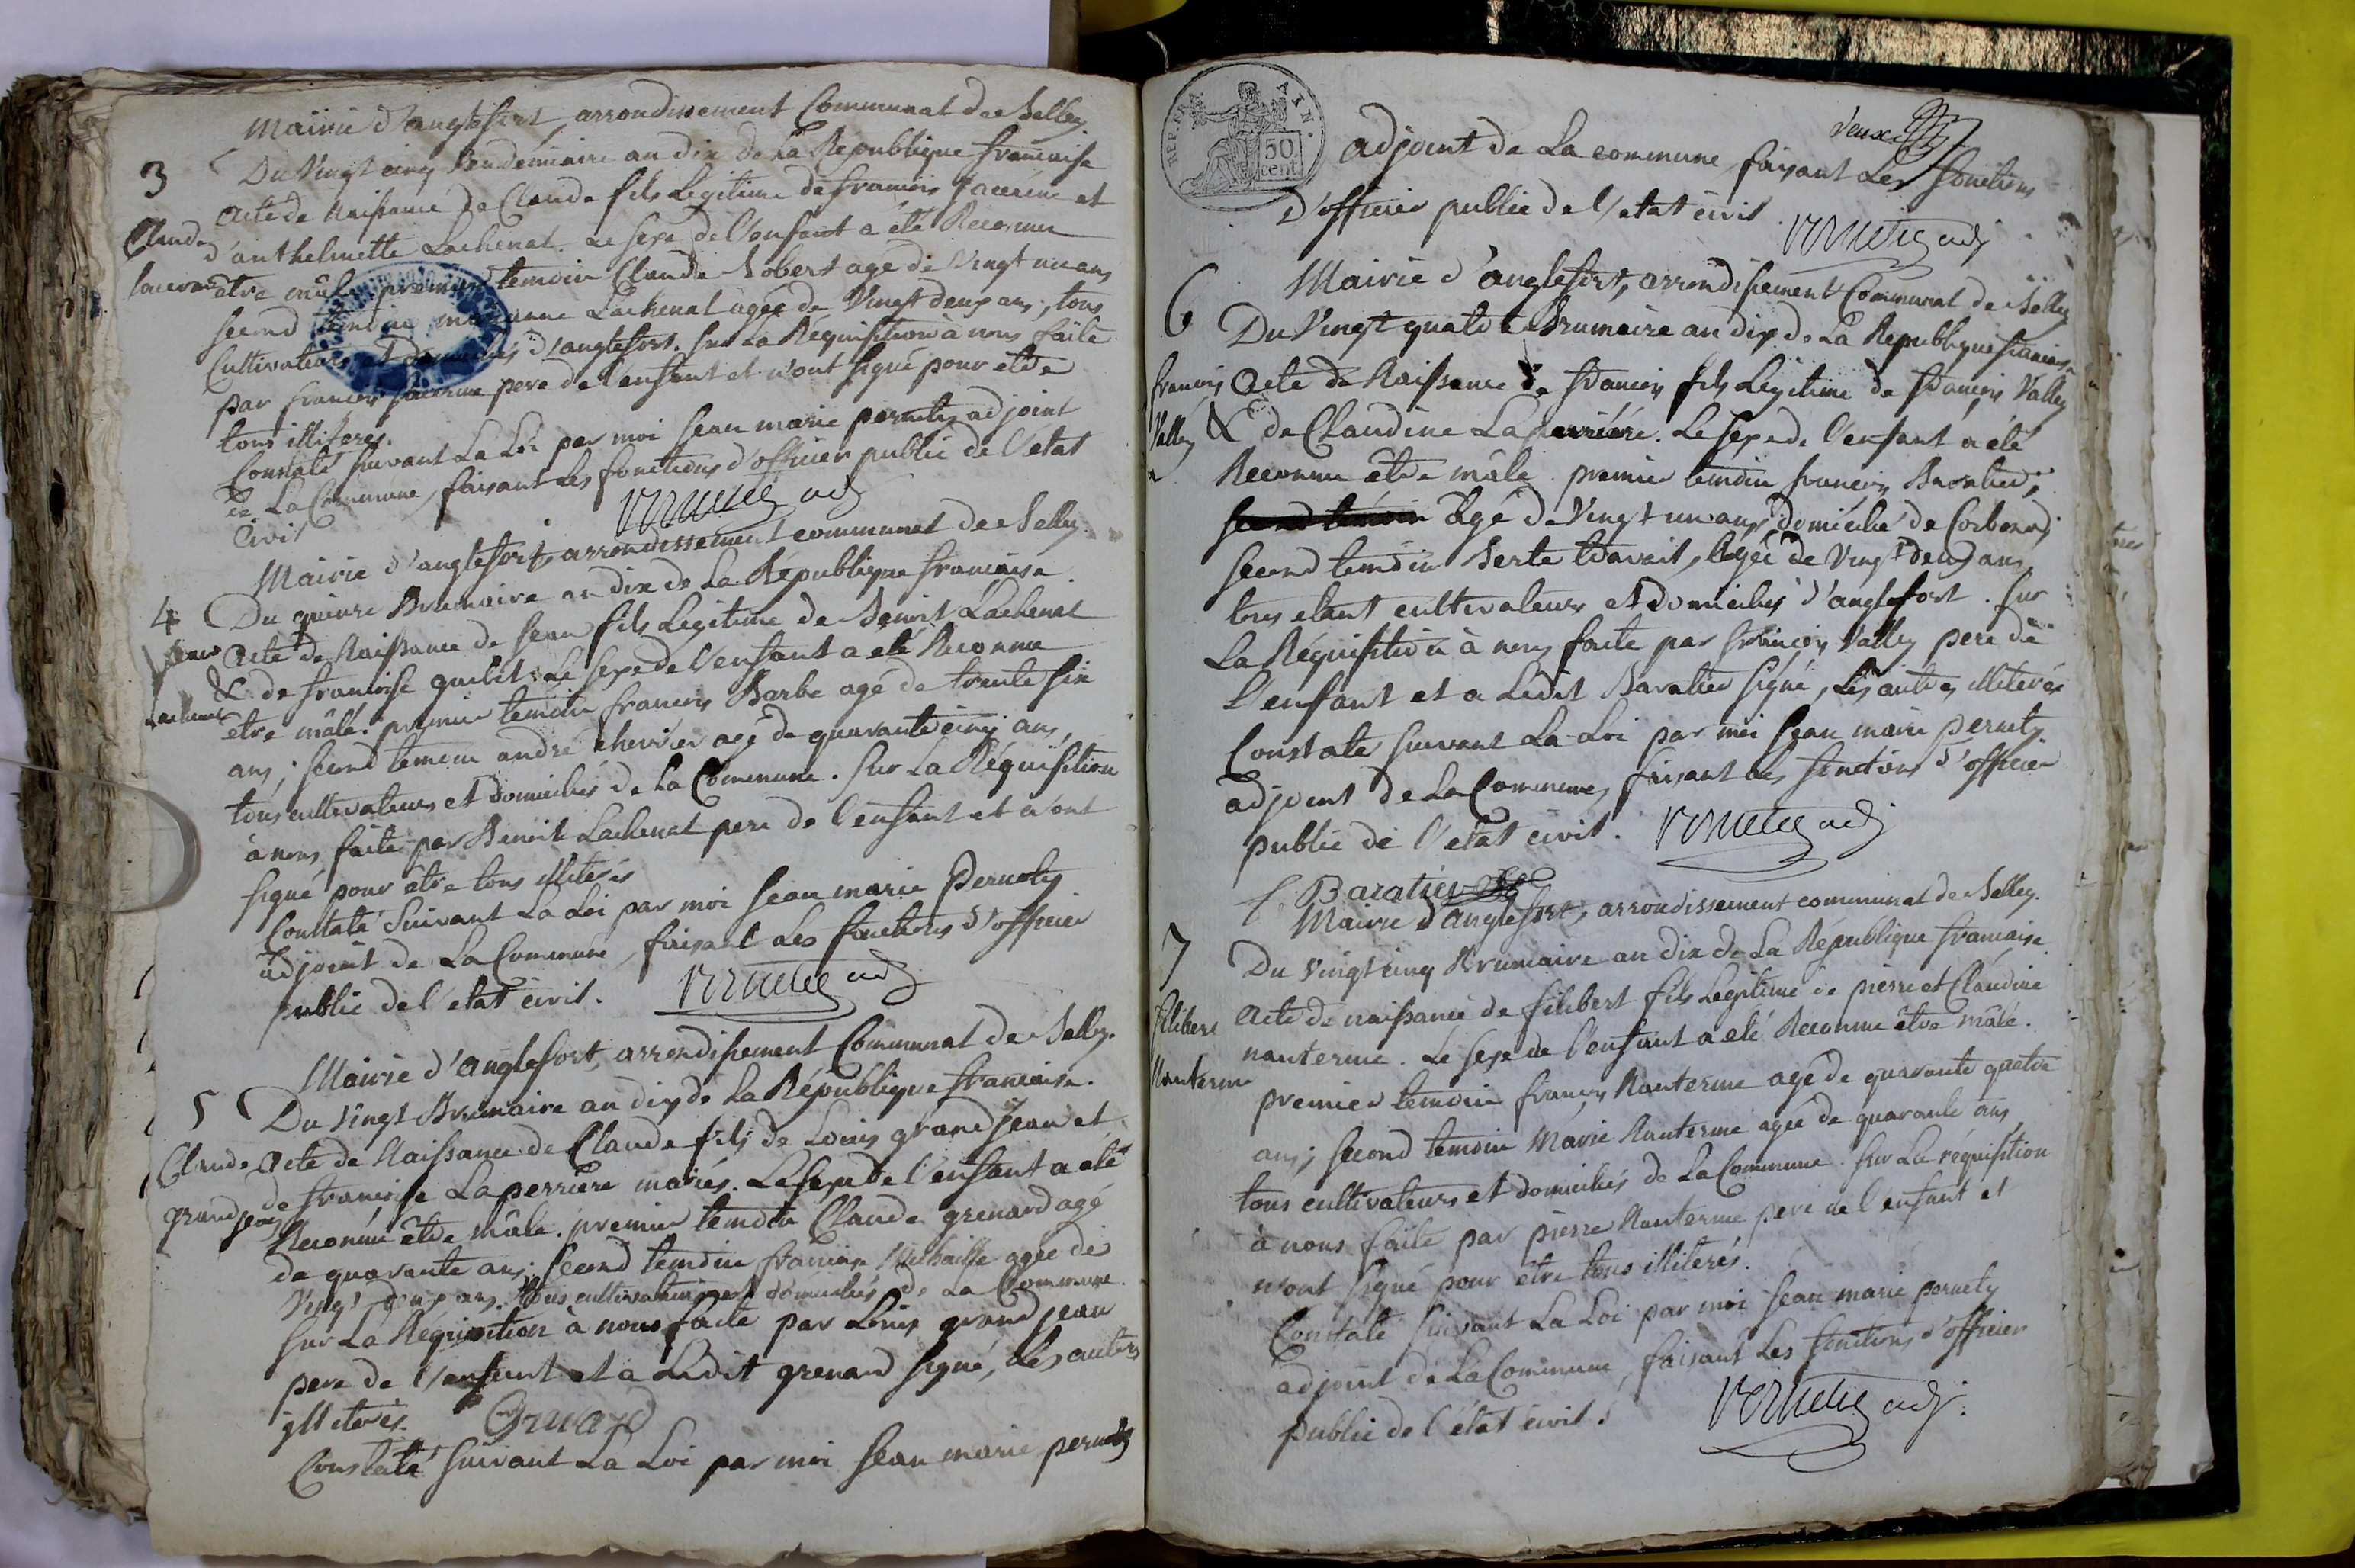 Mairie d'anglefort, arrondissement Communal de Belley.
3
Du Vingt cinq Vendémiaire an dix de la République française
Acte de Naissance de Claude fils Légitime de françois et
Claude
d'anthelmette Lachenal. Le sexe de l'enfant a été Reconnu
être mâle. premier temoin Claude Robert agé de Vingt un ans
second anne Lachenal agée de Vingt deux ans, tous
Cultivateurs et domiciliés d'anglefort. sur La Réquisition à nous faite
par françois pere de l'enfant et n'ont signé pour etre
tous illiteres.
Constaté suivant La Loi par moi Jean marie pernety adjoint
de La Commune, faisant Les fonctions d'officier public de l'etat
Civil
pernety adj
Mairie d'anglefort, arrondissement communal de Belley.
4
Du quinze Brumaire an dix de La République française.
Jean
Acte de Naissance de Jean fils Légitime de Benoit Lachenal
Lachenal
& de françoise guibet. Le sexe de l'enfant a eté Reconnu
être mâle. premier temoin françois Barbe agé de trente six
ans; second temoin andré chevrier agé de quarante cinq ans,
tous cultivateurs et domiciliés de La Commune. Sur La Réquisition
à nous faite par Benoit Lachenal pere de l'enfant et n'ont
signé pour être tous illiterés
Constaté Suivant La Loi par moi Jean marie Pernety
adjoint de La Commune, faisant Les fonctions d'officier
public de l'etat civil.
pernety adj
Mairie d'anglefort, arrondissement Communal de Belley.
5
Du vingt Brumaire an dix de La République française.
Claude
Acte de Naissance de Claude fils de Louis grandjean et
grandjean
de françoise Laperriere mariés. Le sexe de l'enfant a eté
Reconnu être mâle. premier temoin Claude grenard agé
de quarante ans; second temoin françoise agée de
Vingt deux ans. tous cultivateurs et domiciliés de La Commune.
sur La Réquisition à nous faite par Louis grandjean
pere de l'enfant et a Ledit grenard signé, Les autres
illiterés.
Grenard
Constaté suivant La Loi par moi Jean marie pernety
REP. FRA
ATN.
50
cent
deux
adjoint de La commune, faisant Les fonctions
d'officier public de l'etat civil.
pernety adj
Mairie d'anglefort, arrondissement Communal de Belley
6
Du Vingt quatre Brumaire an dix de La République française
françois
Acte de Naissance de françois fils Légitime de françois Valley
Valley
& de Claudine Laperriére. Le sexe de l'enfant a été
Reconnu être mâle. premier temoin françois Baratier;
second témoin agé de Vingt un ans, domicilié de Corbonod;
second temoin Berte travait, Agée de Vingt deux ans,
tous etant cultivateurs et domiciliés d'anglefort. Sur
La Réquisition à nous faite par françois Valley pere de
l'enfant et a Ledit Baratier signé, Les autres illiterés
Constaté suivant La Loi par moi Jean marie pernety
adjoint de La Commune, faisant Les fonctions d'officier
public de l'etat civil.
pernety adj
f. Baratier
Mairie d'anglefort, arrondissement communal de Belley.
7
Du vingt cinq Brumaire an dix de La République française.
filibert
Acte de naissance de filibert fils Legitime de pierre et Claudine
nanterme. Le sexe de l'enfant a eté Reconnu être mâle.
Nanterme
premier temoin françois Nanterme agé de quarante quatre
ans; second temoin Marie Nanterme agée de quarante ans,
tous cultivateurs et domiciliés de La Commune. Sur La réquisition
à nous faite par pierre Nanterme pere de l'enfant et
n'ont signé pour être tous illiterés.
Constaté suivant La Loi par moi Jean marie pernety
adjoint de La Commune, faisant Les fonctions d'officier
public de l'état civil.
pernety adj.